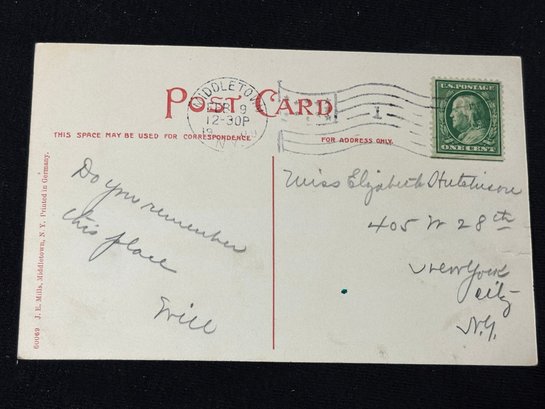 POST CARD
MIDDLETOWN
FEB 9
12-30P
19
N.Y.
1
U.S. POSTAGE
ONE CENT
THIS SPACE MAY BE USED FOR CORRESPONDENCE
FOR ADDRESS ONLY.
Do you remember
this place
Will
Miss Elizabeth Hutchinson
405 W 28th
New York
City
N.Y.
60069 J. E. Mills, Middletown, N. Y. Printed in Germany.